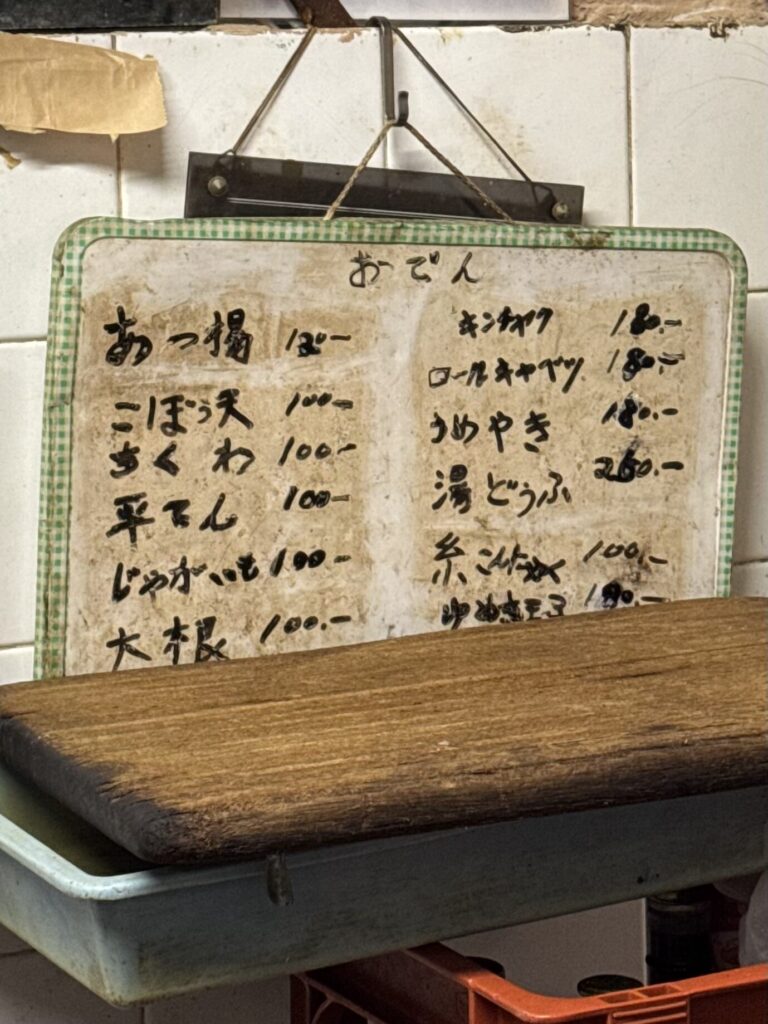 おでん
あつ揚 120-
ごぼう天 100-
ちくわ 100-
平てん 100-
じゃがいも 100-
大根 100.-
キンチャク 180.-
ロールキャベツ 180.-
うめやき 180.-
湯どうふ 260.-
糸こんにゃく 100.-